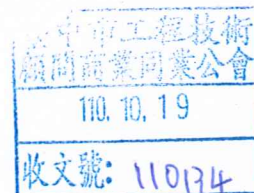 中市工程技術
顧問商業同業公會
110.10.19
收文號: 110134